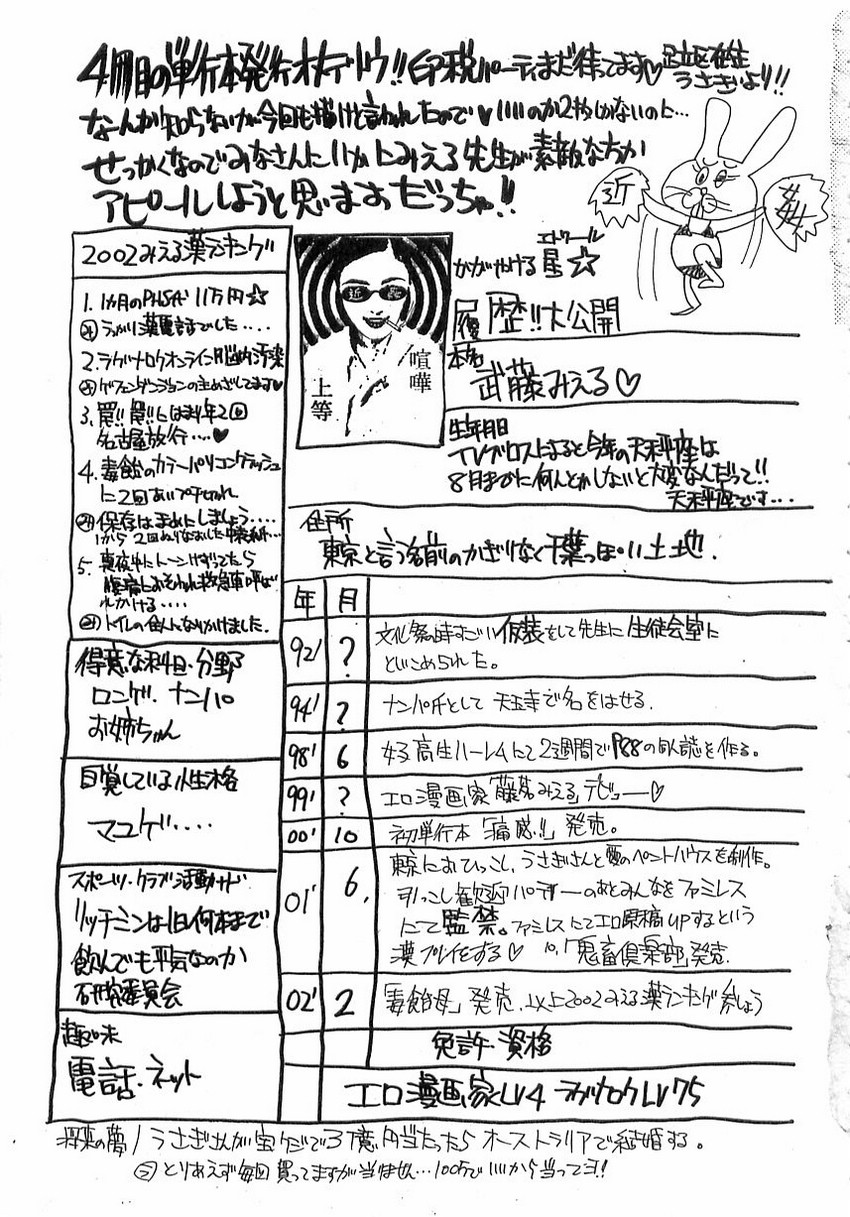 4冊目の単行本発行オメデトウ!!印税パーティまだ待ってます♡足立区在住
うさぎより!!
なーんか知らないが今回も描けと言われたので♥いいのか2枚しかないのに…
せっかくなのでみなさんにいかにみえる先生が素敵な方か
アピールしようと思いますだっちゃ!!
近
女女
2002みえる漢ランキング
1. 1カ月のPHS代 11万円☆
うっかり漢電話でした....
2.ラグナロクオンライン脳内汚染
ゲフェンダンジョンの主めざしてます♥
3. 罠!! 罠!!にはまり年2回
名古屋旅行....♥
4. 毒飴のカラー
に2回あいブチきれ
保存はまめにしましょう....
1から2回ぬりなおした
5. 真夜中にトーンけずってたら
腹痛におそわれ救急車呼ば
れかける....
トイレの住人になりかけました.
得意な科目・分野
ロンゲ. ナンパ
お姉ちゃん
自覚している性格
マユゲ....
スポーツ・クラブ活動など
リッチミンは1日何本まで
飲んでも平気なのか
研究委員会
趣味
電話・ネット
喧嘩
上等
かがやける星☆
エトワール
履歴!!大公開
本名
武藤みえる♡
生年月日
TVブロスによると今年の天秤座は
8月までに何んとかしないと大変なんだって!!
天秤座です...
住所
東京と言う名前のかぎりなく千葉っぽい土地.
年 月
92' ? 文化祭の時すごい仮装をして先生に生徒会室に
とじこめられた。
94' ? ナンパ氏として 天王寺で名をはせる.
98' 6 女子高生ハーレムにて2週間でP88の同人誌を作る。
99' ? エロ漫画家「武藤みえる」デビュー♡
00' 10 初単行本「痛感!!」発売。
01' 6. 東京におひっこし、うさぎさんと愛のペントハウスを制作。
引っこし歓迎パーティーのあとみんなをファミレス
にて監禁。ファミレスにてエロ原稿upするという
漢プレイをする♡ 10.「鬼畜倶楽部」発売.
02' 2 「毒飴母」発売. 以上2002みえる漢ランキング参しょう
免許・資格
エロ漫画家LV4 ラグナロクLV75
将来の夢/うさぎさんが宝クジで3億円当たったら オーストラリアで結婚する。
とりあえず毎回買ってますが当りません…100万でいいから当ってヨ!!